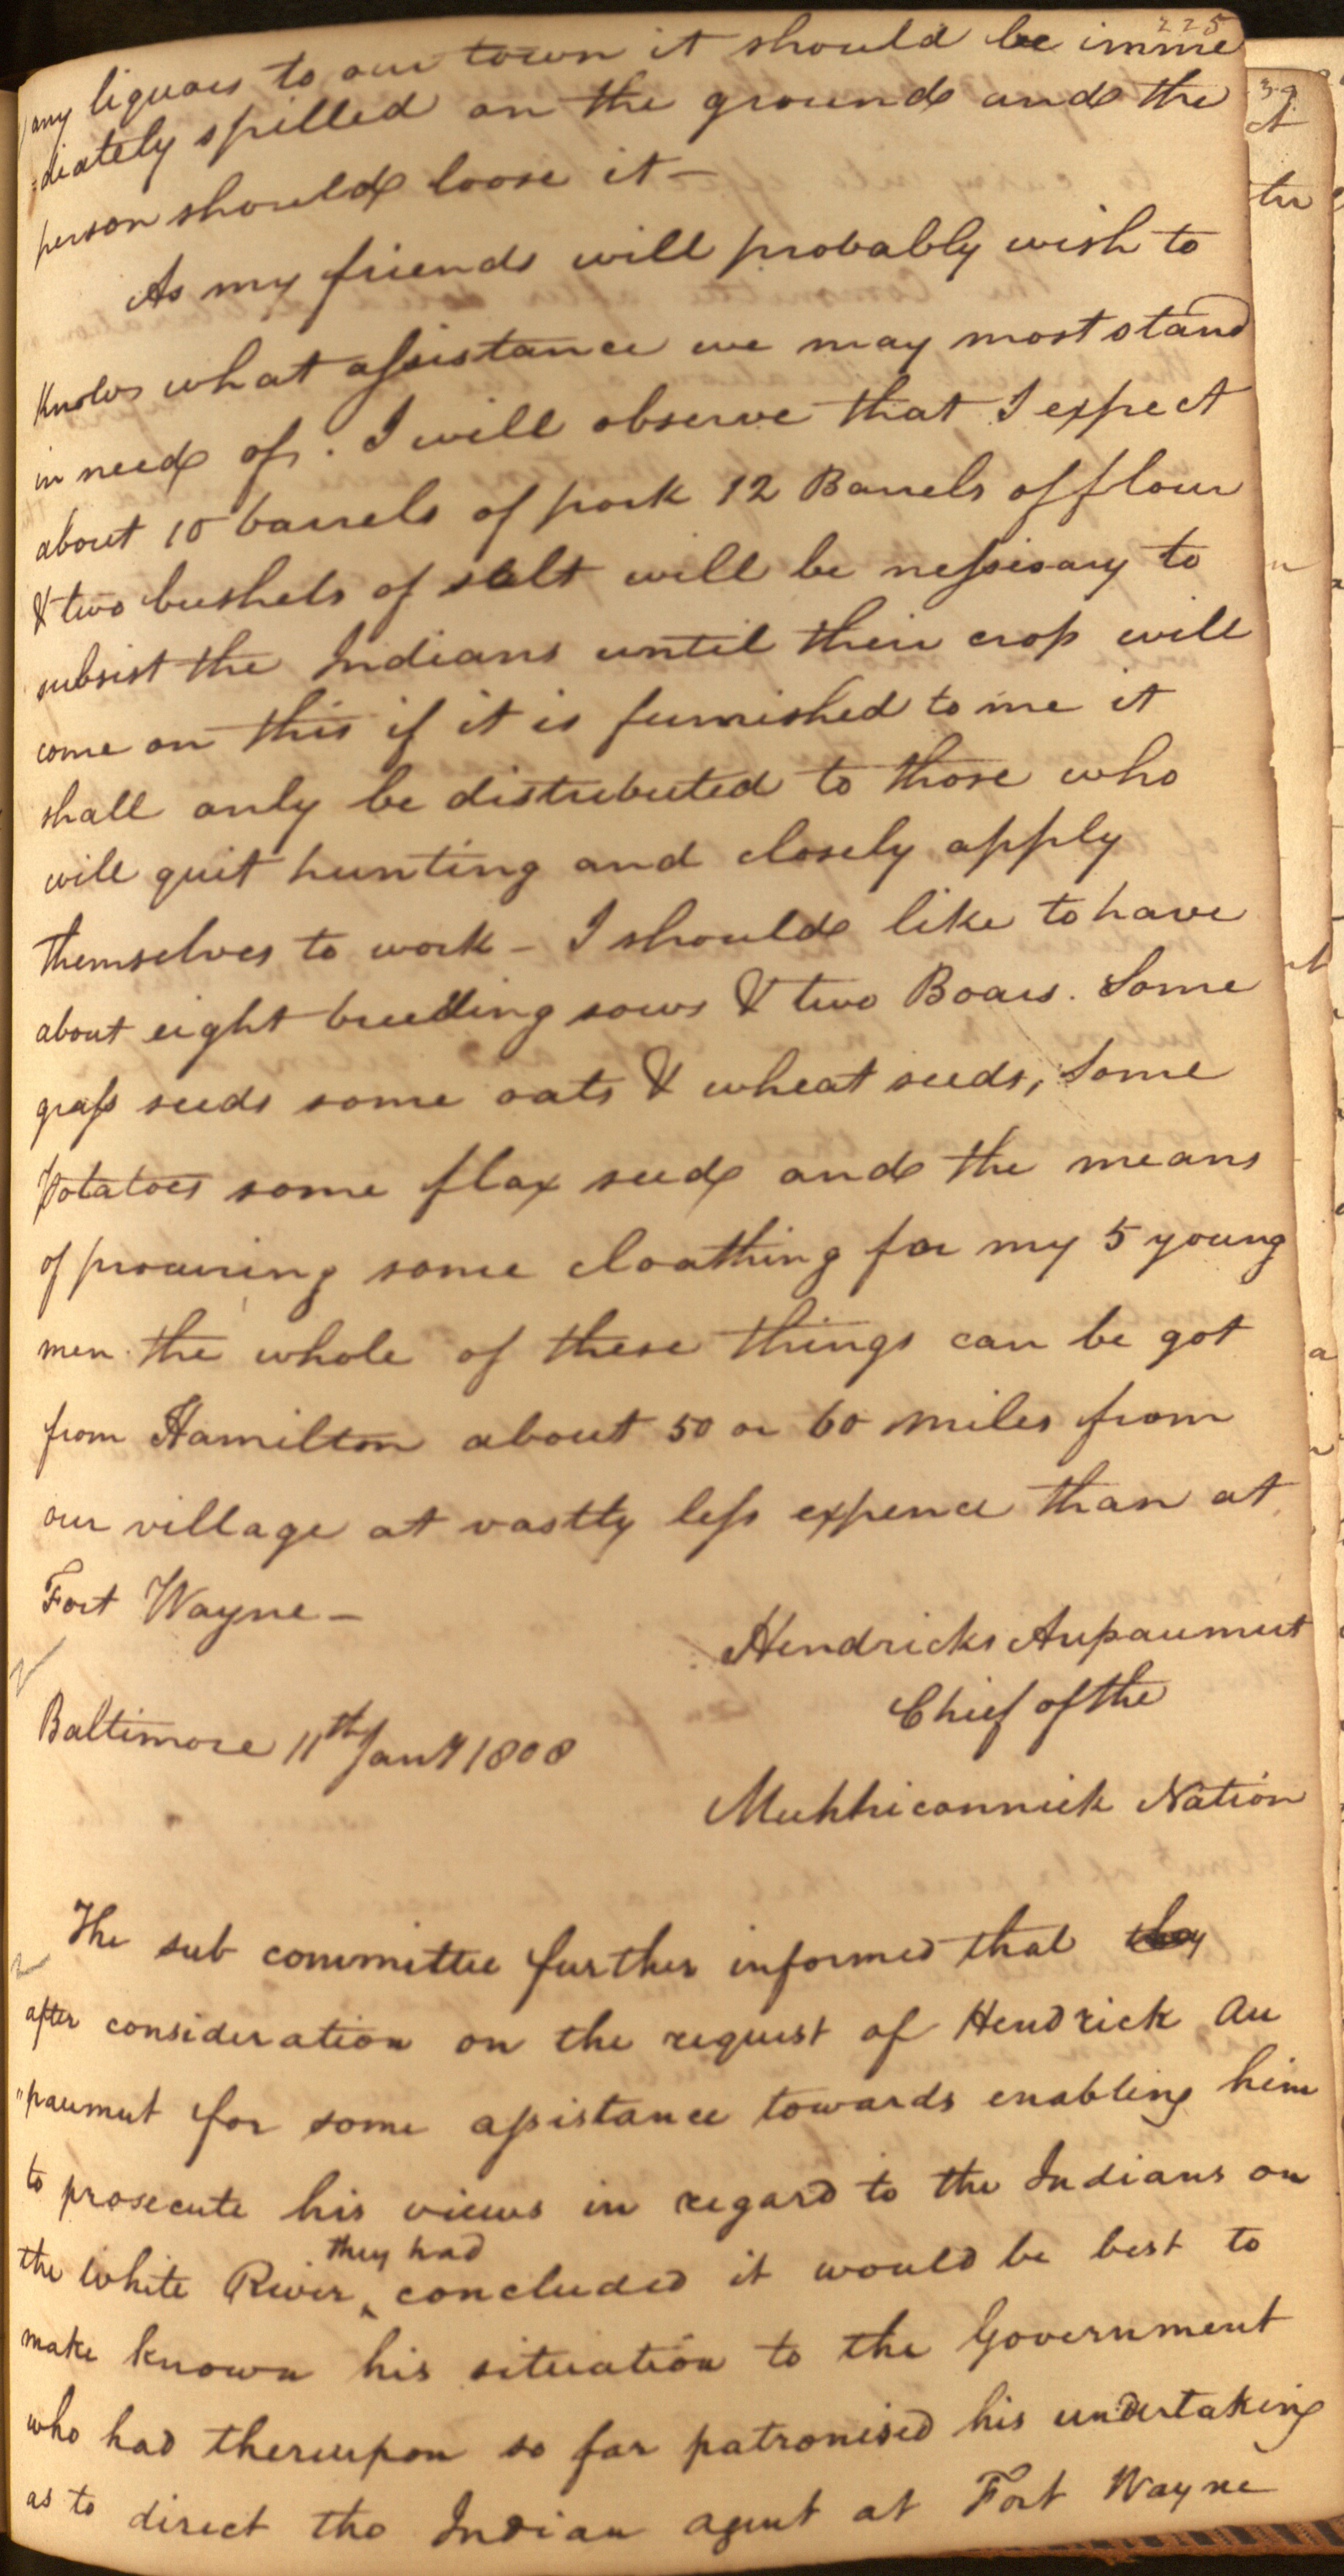 225
any liquors to our town it should be imme
=diately spilled on the ground and the
person should loose it -
As my friends will probably wish to
know what assistance we may most stand
in need of. I will observe that I expect
about 10 barrels of pork 12 Barrels of flour
& two bushels of salt will be nessisary to
subsist the Indians until their crop will
come on this if it is furnished to me it
shall only be distributed to those who
will quit hunting and closely apply
themselves to work - I should like to have
about eight breeding sows & two Boars. Some
grass seeds some oats & wheat seeds, Some
Potatoes some flax seed and the means
of procuring some cloathing for my 5 young
men. the whole of these things can be got
from Hamilton about 50 or 60 miles from
our village at vastly less expence than at
Fort Wayne -
Hendricks Aupaumut
Chief of the
Baltimore 11th Jany 1808
Muhhiconnick Nation
The sub committee further informed that they
after consideration on the request of Hendrick Au
"paumut for some assistance towards enabling him
to prosecute his views in regard to the Indians on
they had
the White River ‸ concluded it would be best to
make known his situation to the Government
who had thereupon so far patronised his undertaking
as to direct the Indian agent at Fort Wayne